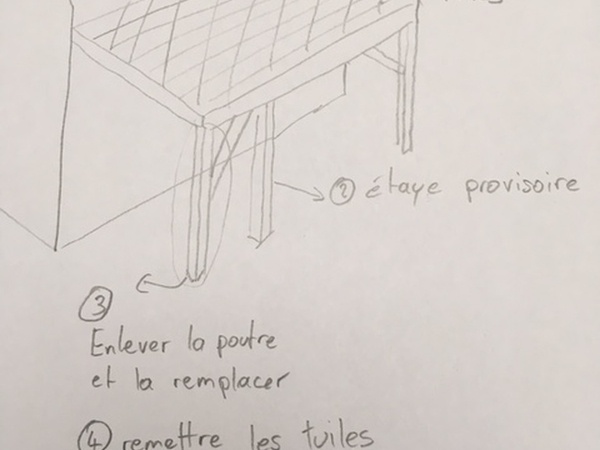 ② étaye provisoire
③
Enlever la poutre
et la remplacer
④ remettre les tuiles